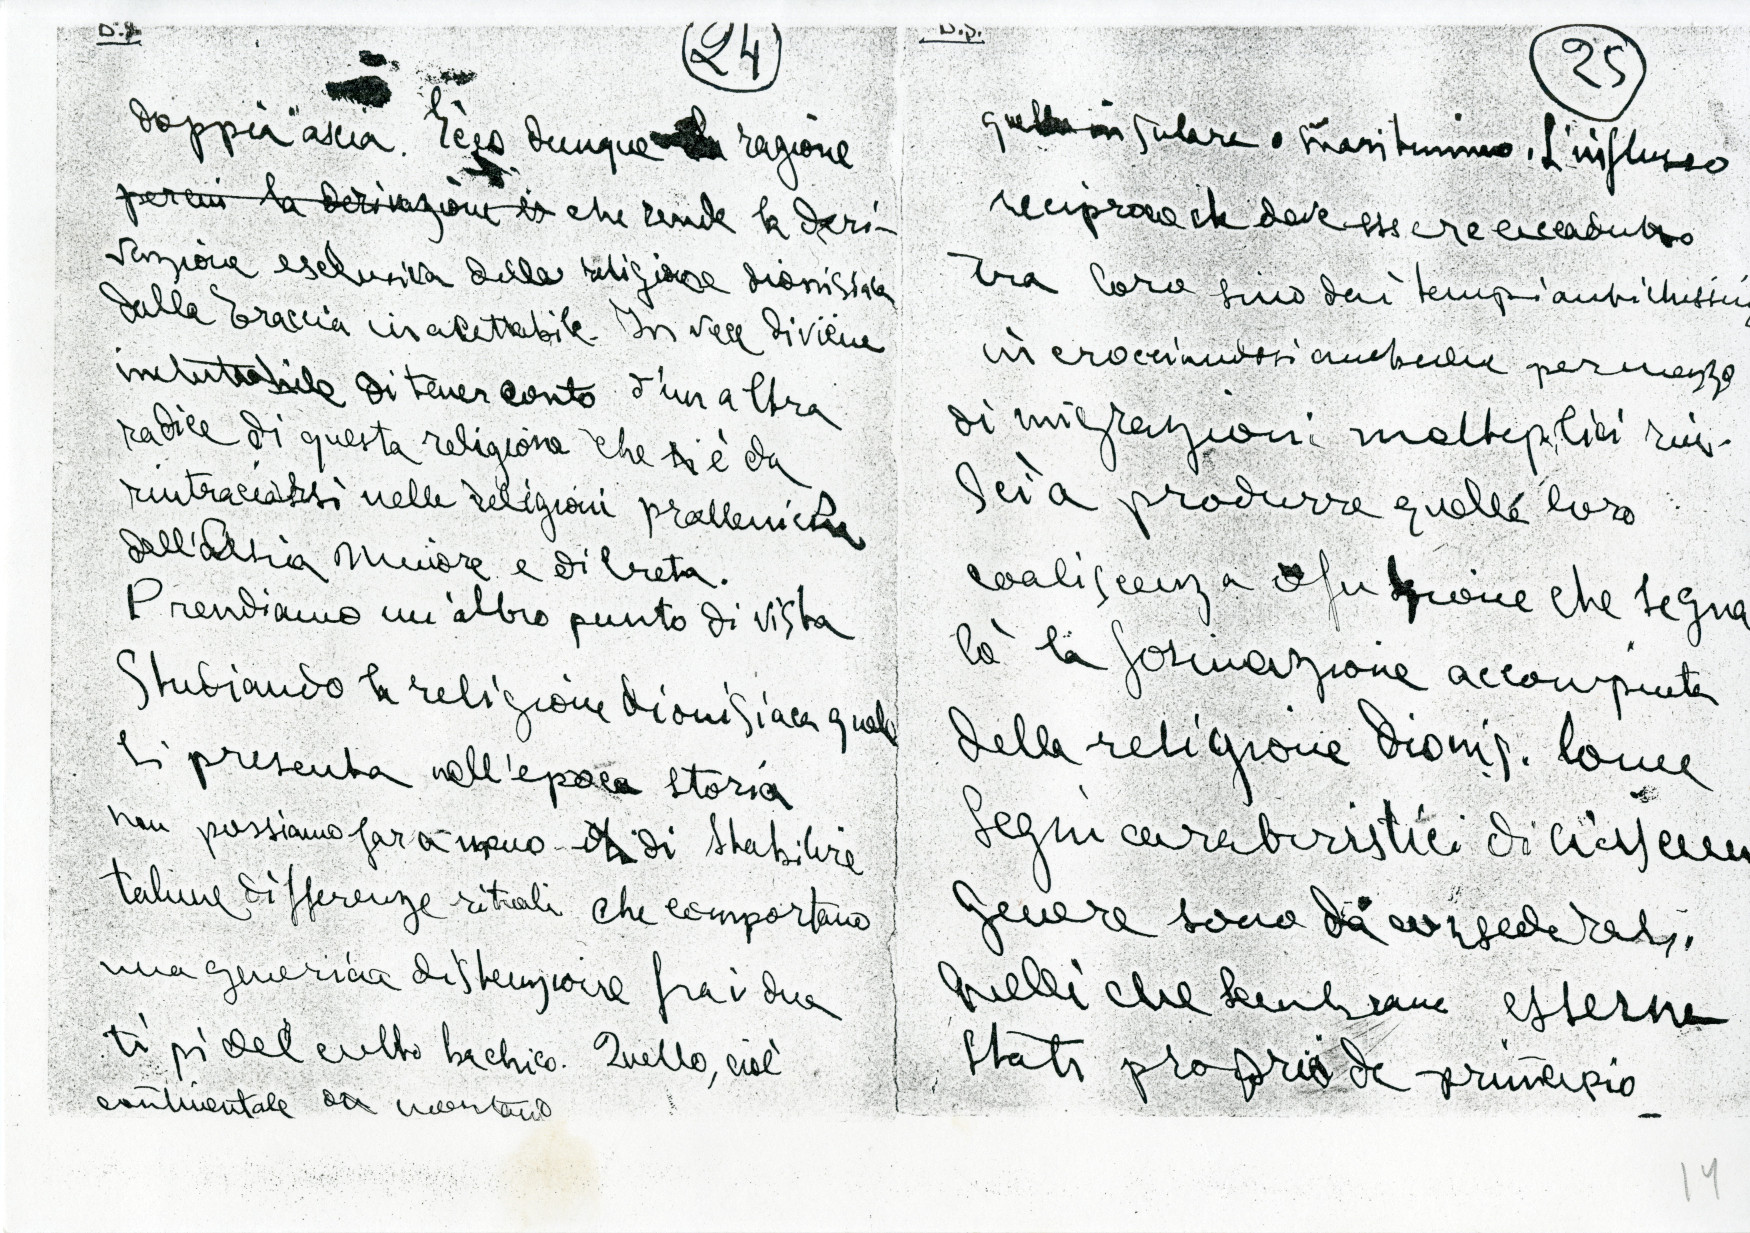 D.s.
24
doppia ascia. Ecco dunque la ragione
percui la derivazione è che rende la deri-
vazione esclusiva della religione dionisiaca
dalla Traccia inacettabile. In vece diviene
ineluttabile di tener conto d'un altra
radice di questa religione che si è da
rintracciarsi nelle religioni prelleniche
dell'Assia Minore e di Creta.
Prendiamo un'altro punto di vista
Studiando la religione dionisiaca quale
si presenta nell'epoca storia
non possiamo far a meno di stabilire
talune differenze rituali che comportano
una generica distenzione fra i due
tipi del culto bachico. Quello, cioè
continentale o montano
D.s.
25
quello insulare o maritimmo. L'influsso
reciproco che deve essere accaduto
tra loro sino dai tempi antichissimi
incrocciandosi anche per mezzo
di migrazioni molteplici riu-
scì a produrre quella loro
coaliscenza o fuzione che segna
lò la formazione accompiuta
della religione Dionis. Come
segni caratteristici di ciascun
genere sono da considerarsi.
quelli che sembrano essere
stati proprio da principio
14